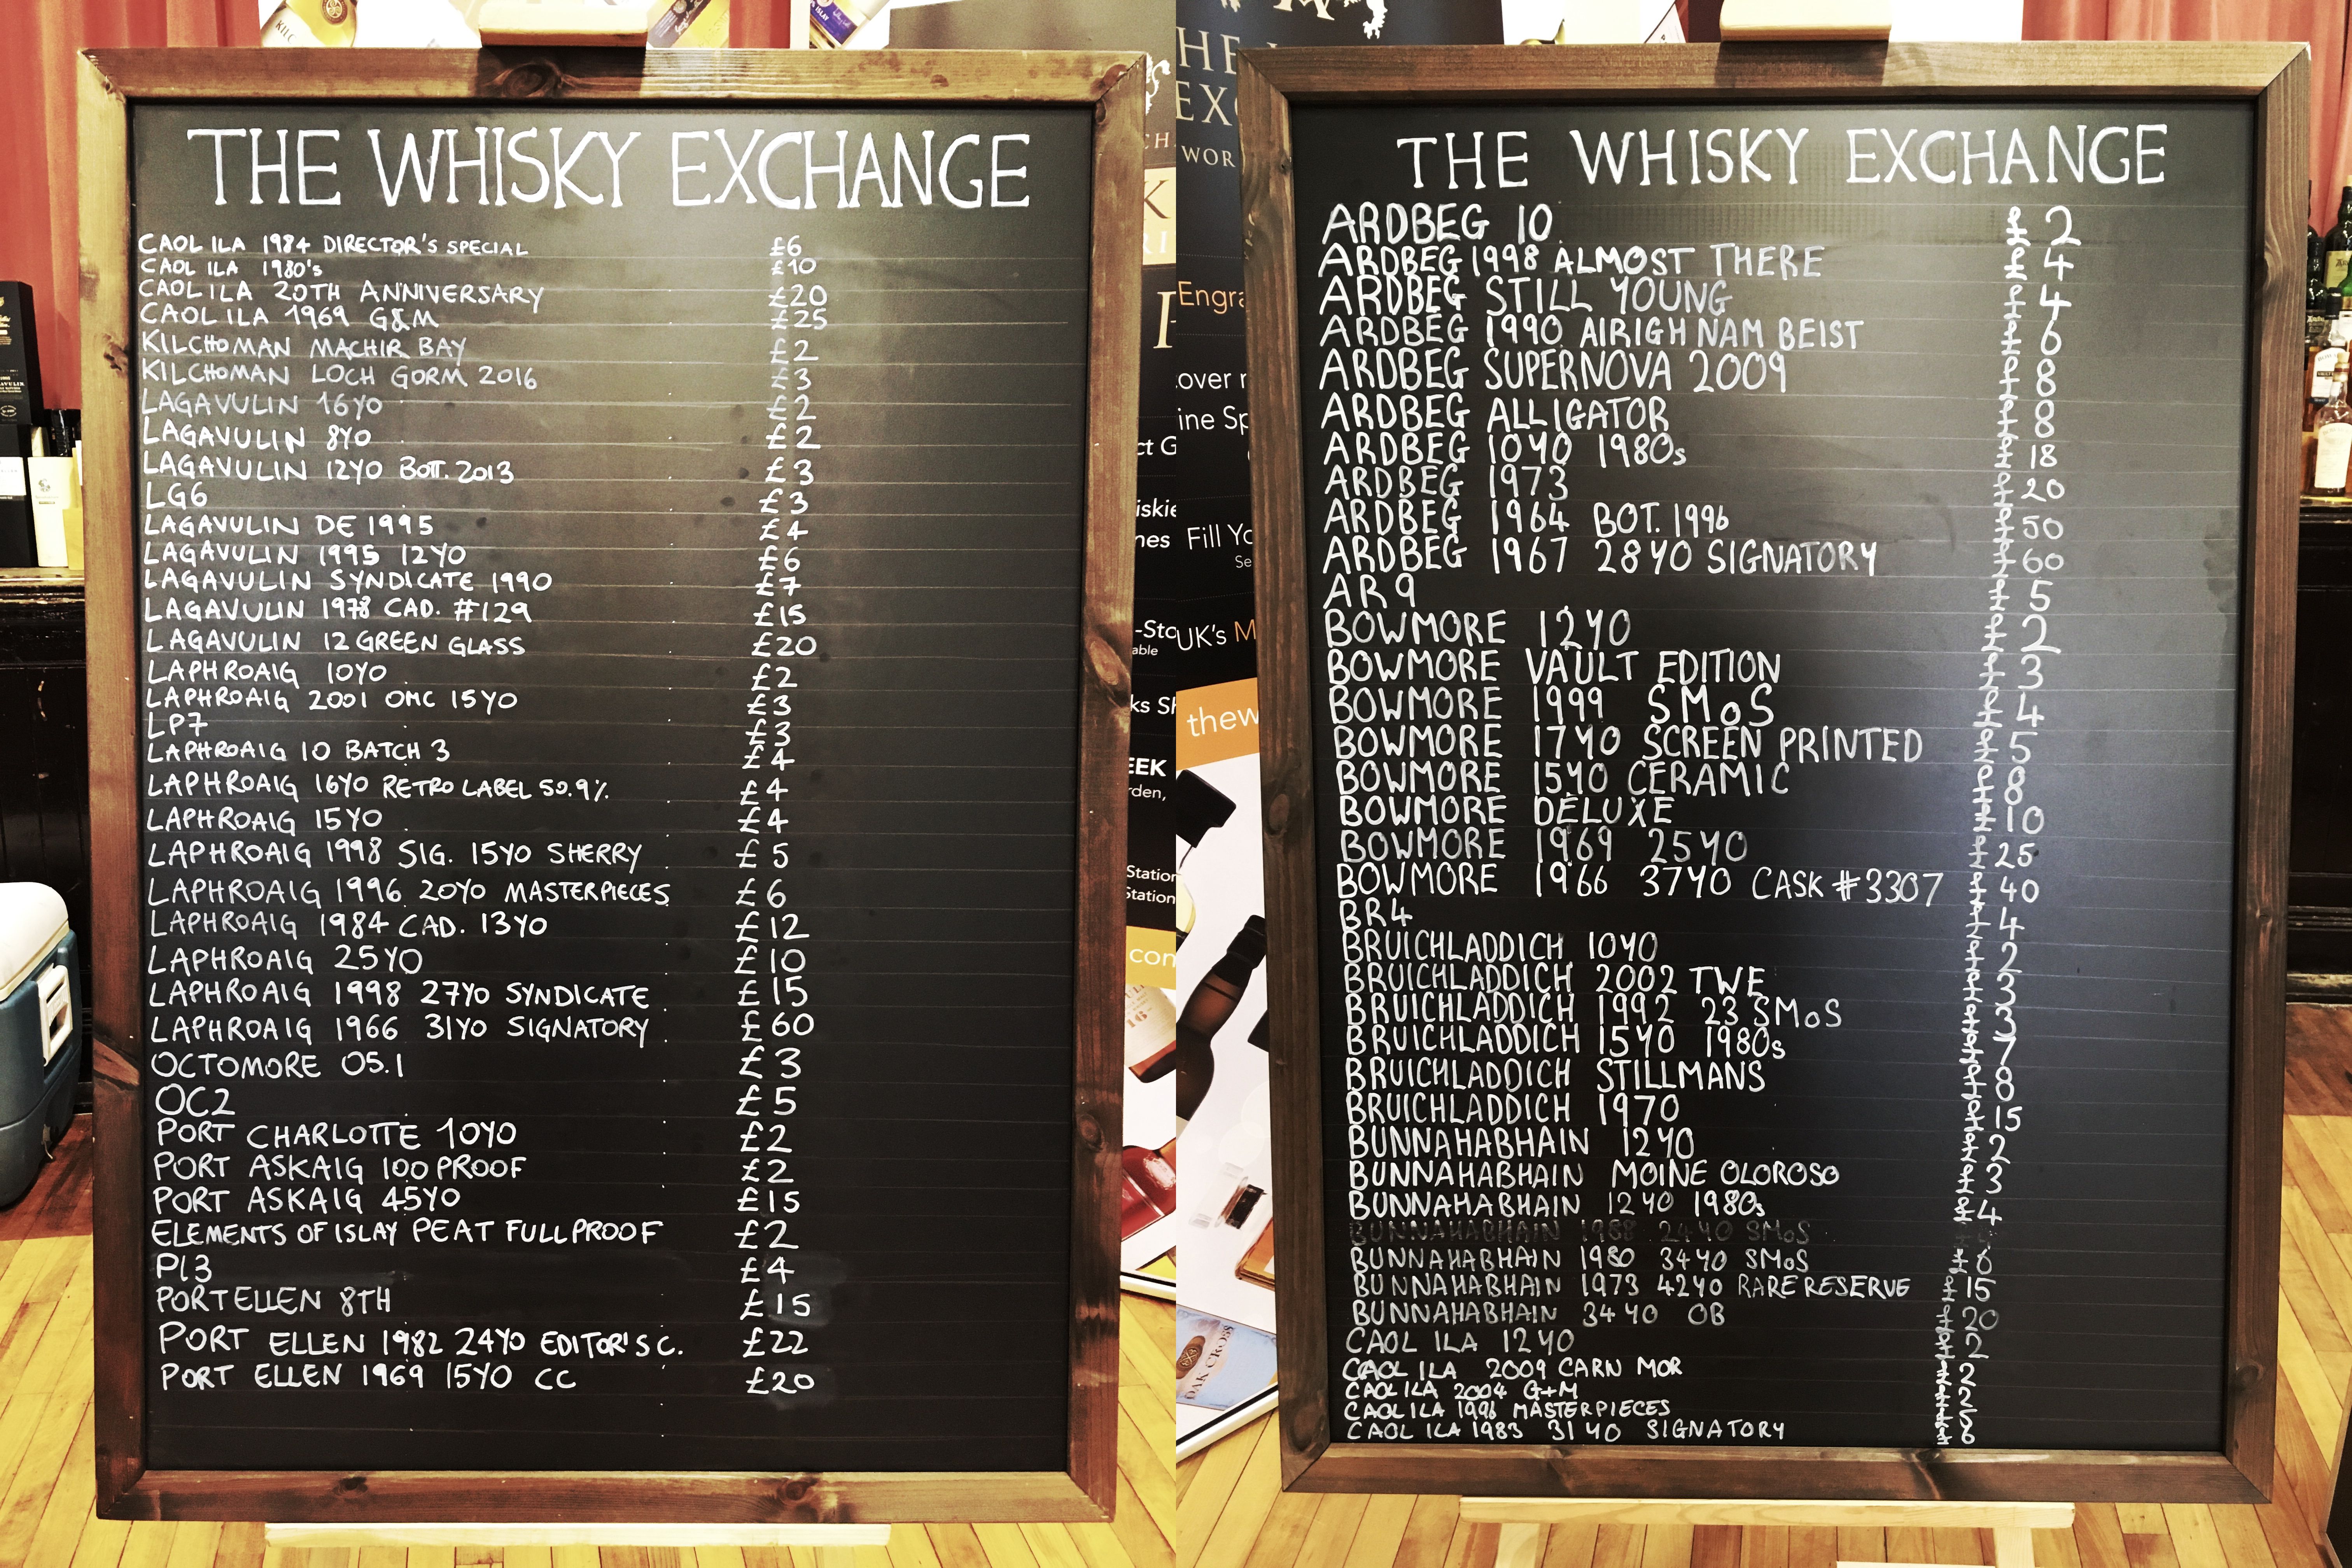 THE WHISKY EXCHANGE
CAOL ILA 1984 DIRECTOR'S SPECIAL £6
CAOL ILA 1980's £10
CAOL ILA 20TH ANNIVERSARY £20
CAOL ILA 1969 G&M £25
KILCHOMAN MACHIR BAY £2
KILCHOMAN LOCH GORM 2016 £3
LAGAVULIN 16YO £2
LAGAVULIN 8YO £2
LAGAVULIN 12YO BOTT. 2013 £3
LG6 £3
LAGAVULIN DE 1995 £4
LAGAVULIN 1995 12YO £6
LAGAVULIN SYNDICATE 1990 £7
LAGAVULIN 1978 CAD. #129 £15
LAGAVULIN 12 GREEN GLASS £20
LAPHROAIG 10YO £2
LAPHROAIG 2001 OMC 15YO £3
LP7 £3
LAPHROAIG 10 BATCH 3 £4
LAPHROAIG 16YO RETRO LABEL 50.9% £4
LAPHROAIG 15YO £4
LAPHROAIG 1998 SIG. 15YO SHERRY £5
LAPHROAIG 1996 20YO MASTERPIECES £6
LAPHROAIG 1984 CAD. 13YO £12
LAPHROAIG 25YO £10
LAPHROAIG 1998 27YO SYNDICATE £15
LAPHROAIG 1966 31YO SIGNATORY £60
OCTOMORE 05.1 £3
OC2 £5
PORT CHARLOTTE 10YO £2
PORT ASKAIG 100 PROOF £2
PORT ASKAIG 45YO £15
ELEMENTS OF ISLAY PEAT FULL PROOF £2
Pl3 £4
PORT ELLEN 8TH £15
PORT ELLEN 1982 24YO EDITOR'S C. £22
PORT ELLEN 1969 15YO CC £20
THE WHISKY EXCHANGE
ARDBEG 10 £2
ARDBEG 1998 ALMOST THERE £4
ARDBEG STILL YOUNG £4
ARDBEG 1990 AIRIGH NAM BEIST £6
ARDBEG SUPERNOVA 2009 £8
ARDBEG ALLIGATOR £8
ARDBEG 10YO 1980s £18
ARDBEG 1973 £20
ARDBEG 1964 BOT. 1996 £50
ARDBEG 1967 28YO SIGNATORY £60
AR9 £5
BOWMORE 12YO £2
BOWMORE VAULT EDITION £3
BOWMORE 1999 SMoS £4
BOWMORE 17YO SCREEN PRINTED £5
BOWMORE 15YO CERAMIC £8
BOWMORE DELUXE £10
BOWMORE 1969 25YO £25
BOWMORE 1966 37YO CASK #3307 £40
BR4 £4
BRUICHLADDICH 10YO £2
BRUICHLADDICH 2002 TWE £3
BRUICHLADDICH 1992 23 SMoS £3
BRUICHLADDICH 15YO 1980s £7
BRUICHLADDICH STILLMANS £8
BRUICHLADDICH 1970 £15
BUNNAHABHAIN 12YO £2
BUNNAHABHAIN MOINE OLOROSO £3
BUNNAHABHAIN 12YO 1980s £4
BUNNAHABHAIN 1988 24YO SMoS
BUNNAHABHAIN 1980 34YO SMoS £8
BUNNAHABHAIN 1973 42YO RARE RESERVE £15
BUNNAHABHAIN 34YO OB £20
CAOL ILA 12YO £2
CAOL ILA 2009 CARN MOR £2
CAOL ILA 2004 G+M £2
CAOL ILA 1996 MASTERPIECES
CAOL ILA 1983 31YO SIGNATORY
Engra
over
ine Sp
Fill Yo
UK's M
thew
EEK
rden,
Station
Station
com